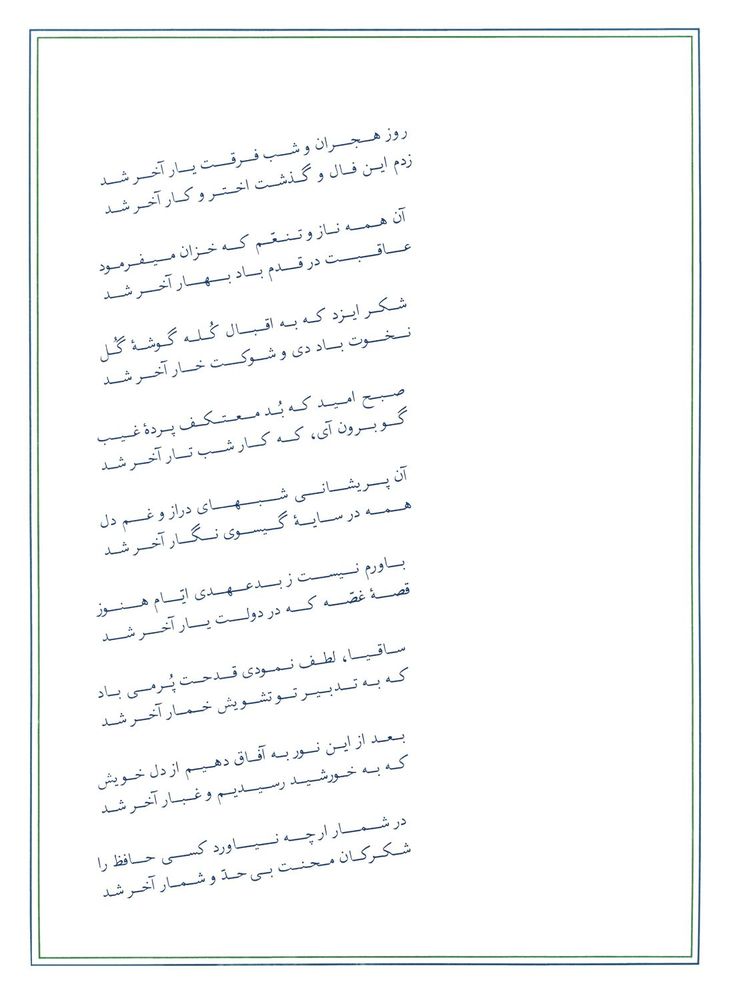 روز هجران و شب فرقت یار آخر شد
زدم این فال و گذشت اختر و کار آخر شد
آن همه ناز و تنعّم که خزان میفرمود
عاقبت در قدم باد بهار آخر شد
شکر ایزد که به اقبال کُله گوشهٔ گُل
نخوت باد دی و شوکت خار آخر شد
صبح امید که بُد معتکف پردهٔ غیب
گو برون آی، که کار شب تار آخر شد
آن پریشانی شبهای دراز و غم دل
همه در سایهٔ گیسوی نگار آخر شد
باورم نیست ز بدعهدی ایّام هنوز
قصهٔ غصّه که در دولت یار آخر شد
ساقیا، لطف نمودی قدحت پُرمی باد
که به تدبیر تو تشویش خمار آخر شد
بعد از این نور به آفاق دهیم از دل خویش
که به خورشید رسیدیم و غبار آخر شد
در شمار ارچه نیاورد کسی حافظ را
شکرکان محنت بی حدّ و شمار آخر شد